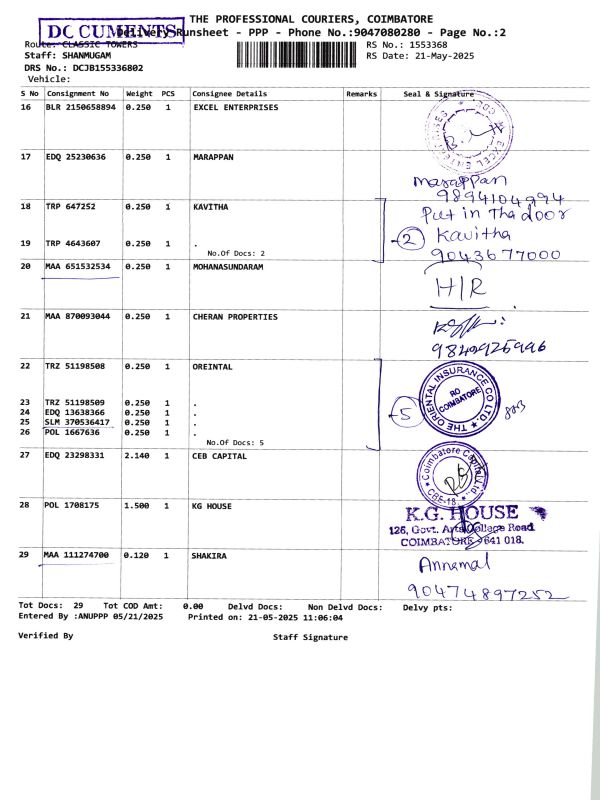 THE PROFESSIONAL COURIERS, COIMBATORE
DOCUMENTS Delivery Runsheet - PPP - Phone No.:9047080280 - Page No.:2
Route: CLASSIC TOWERS RS No.: 1553368
Staff: SHANMUGAM RS Date: 21-May-2025
DRS No.: DCJB155336802
Vehicle:
S No Consignment No Weight PCS Consignee Details Remarks Seal & Signature
16 BLR 2150658894 0.250 1 EXCEL ENTERPRISES
EXCEL ENTERPRISES
17 EDQ 25230636 0.250 1 MARAPPAN
Marappan
9894104994
18 TRP 647252 0.250 1 KAVITHA
Put in the door
19 TRP 4643607 0.250 1 .
2 Kavitha
No.Of Docs: 2
9043677000
20 MAA 651532534 0.250 1 MOHANASUNDARAM
H/R
21 MAA 870093044 0.250 1 CHERAN PROPERTIES
9840925996
22 TRZ 51198508 0.250 1 OREINTAL
23 TRZ 51198509 0.250 1 .
24 EDQ 13638366 0.250 1 .
25 SLM 370536417 0.250 1 .
26 POL 1667636 0.250 1 .
No.Of Docs: 5
5
THE ORIENTAL INSURANCE CO LTD.
RO
COIMBATORE
27 EDQ 23298331 2.140 1 CEB CAPITAL
Coimbatore Capital Ltd
CBE-18
28 POL 1708175 1.500 1 KG HOUSE
K.G. HOUSE
126, Govt. Arts College Road
COIMBATORE - 641 018.
29 MAA 111274700 0.120 1 SHAKIRA
Annamal
90474897252
Tot Docs: 29 Tot COD Amt: 0.00 Delvd Docs: Non Delvd Docs: Delvy pts:
Entered By :ANUPPP 05/21/2025 Printed on: 21-05-2025 11:06:04
Verified By Staff Signature